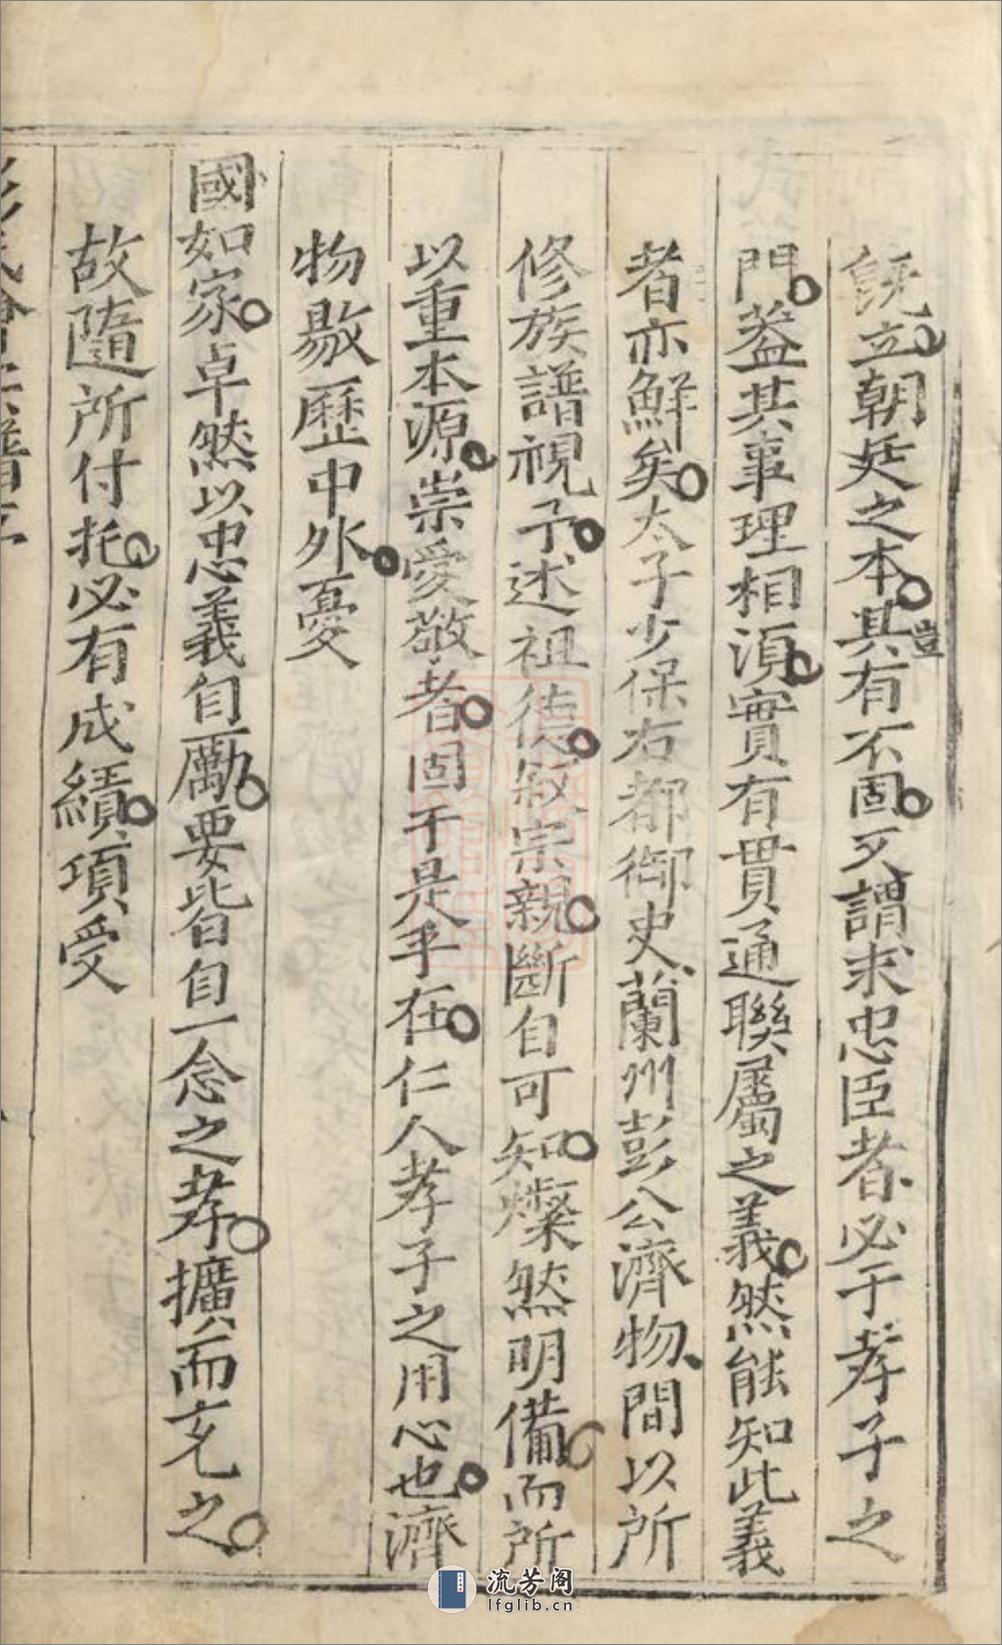 旣立朝廷之本其豈有不固又謂求忠臣者必于孝子之
門葢其事理相湏實有貫通聯屬之義然能知此義
者亦鮮矣太子少保右都御史蘭州彭公濟物間以所
修族譜視予述祖德叙宗親斷自可知燦然明備而所
以重本源崇愛敬者固于是乎在仁人孝子之用心也濟
物敭歷中外憂
國如家卓然以忠義自勵要皆自一念之孝擴而充之
故隨所付托必有成績頃受
流芳阁
lfglib.cn